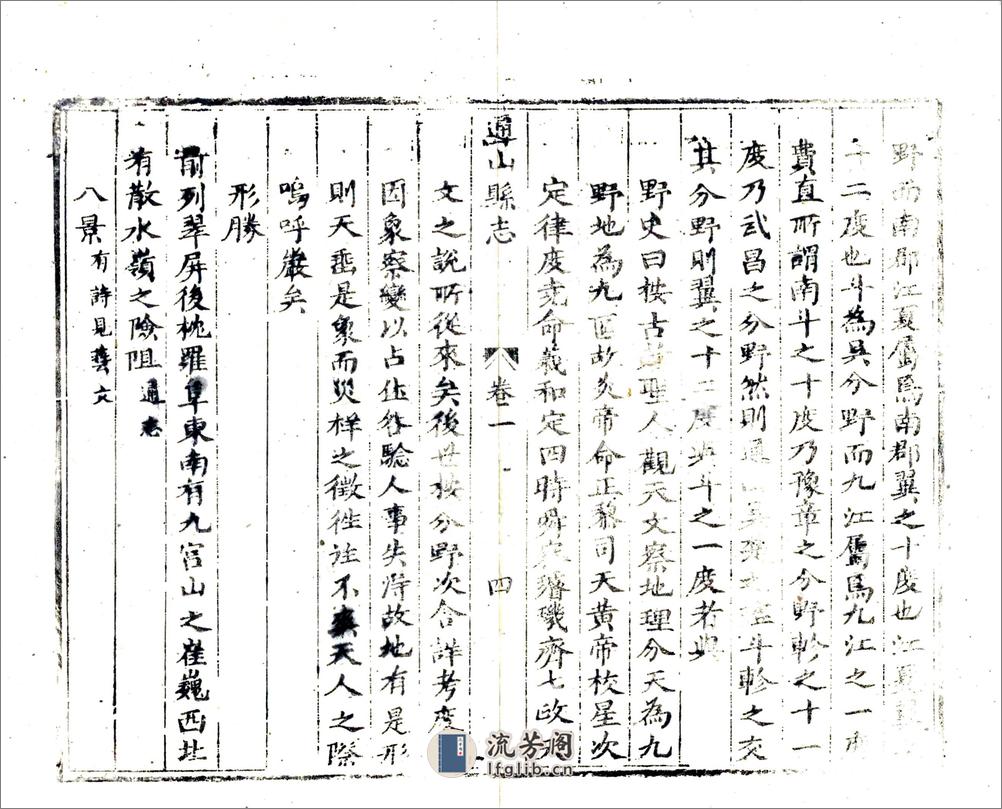 野西南郡江夏屬焉南郡翼之十度也江夏翼
十二度也斗為吳分野而九江屬焉九江之一度
費直所謂南斗之十度乃豫章之分野軫之十一
度乃武昌之分野然則通山翼斗軫之交
其分野則翼之十二度與斗之一度若與
野史曰按古聖人觀天文察地理分天為九
野地為九區故炎帝命正黎司天黃帝校星次
定律度堯命羲和定四時舜在璿璣齊七政
通山縣志 卷一 四
文之說所從來矣後世按分野次合詳考度
因象察變以占休咎驗人事失得故地有是形
則天垂是象而災祥之徵徃徃不爽天人之際
嗚呼嚴矣
形勝
前列翠屏後枕羅阜東南有九宮山之崔巍西北
有散水嶺之險阻 通志
八景 有詩見藝文
流芳阁
lfglib.cn